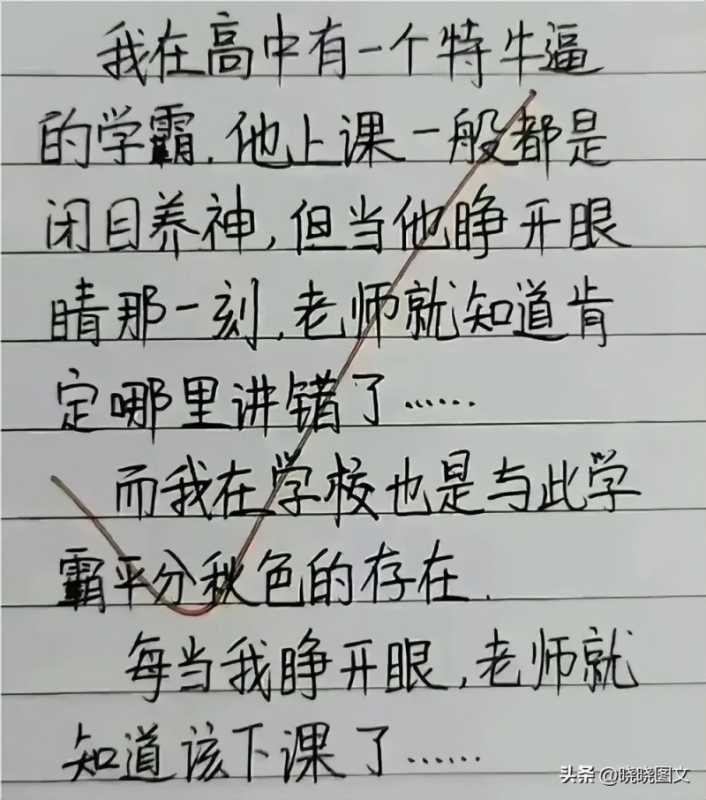 我在高中有一个特牛逼
的学霸.他上课一般都是
闭目养神,但当他睁开眼
睛那一刻,老师就知道肯
定哪里讲错了……
而我在学校也是与此学
霸平分秋色的存在.
每当我睁开眼,老师就
知道该下课了……
头条 @晓晓图文